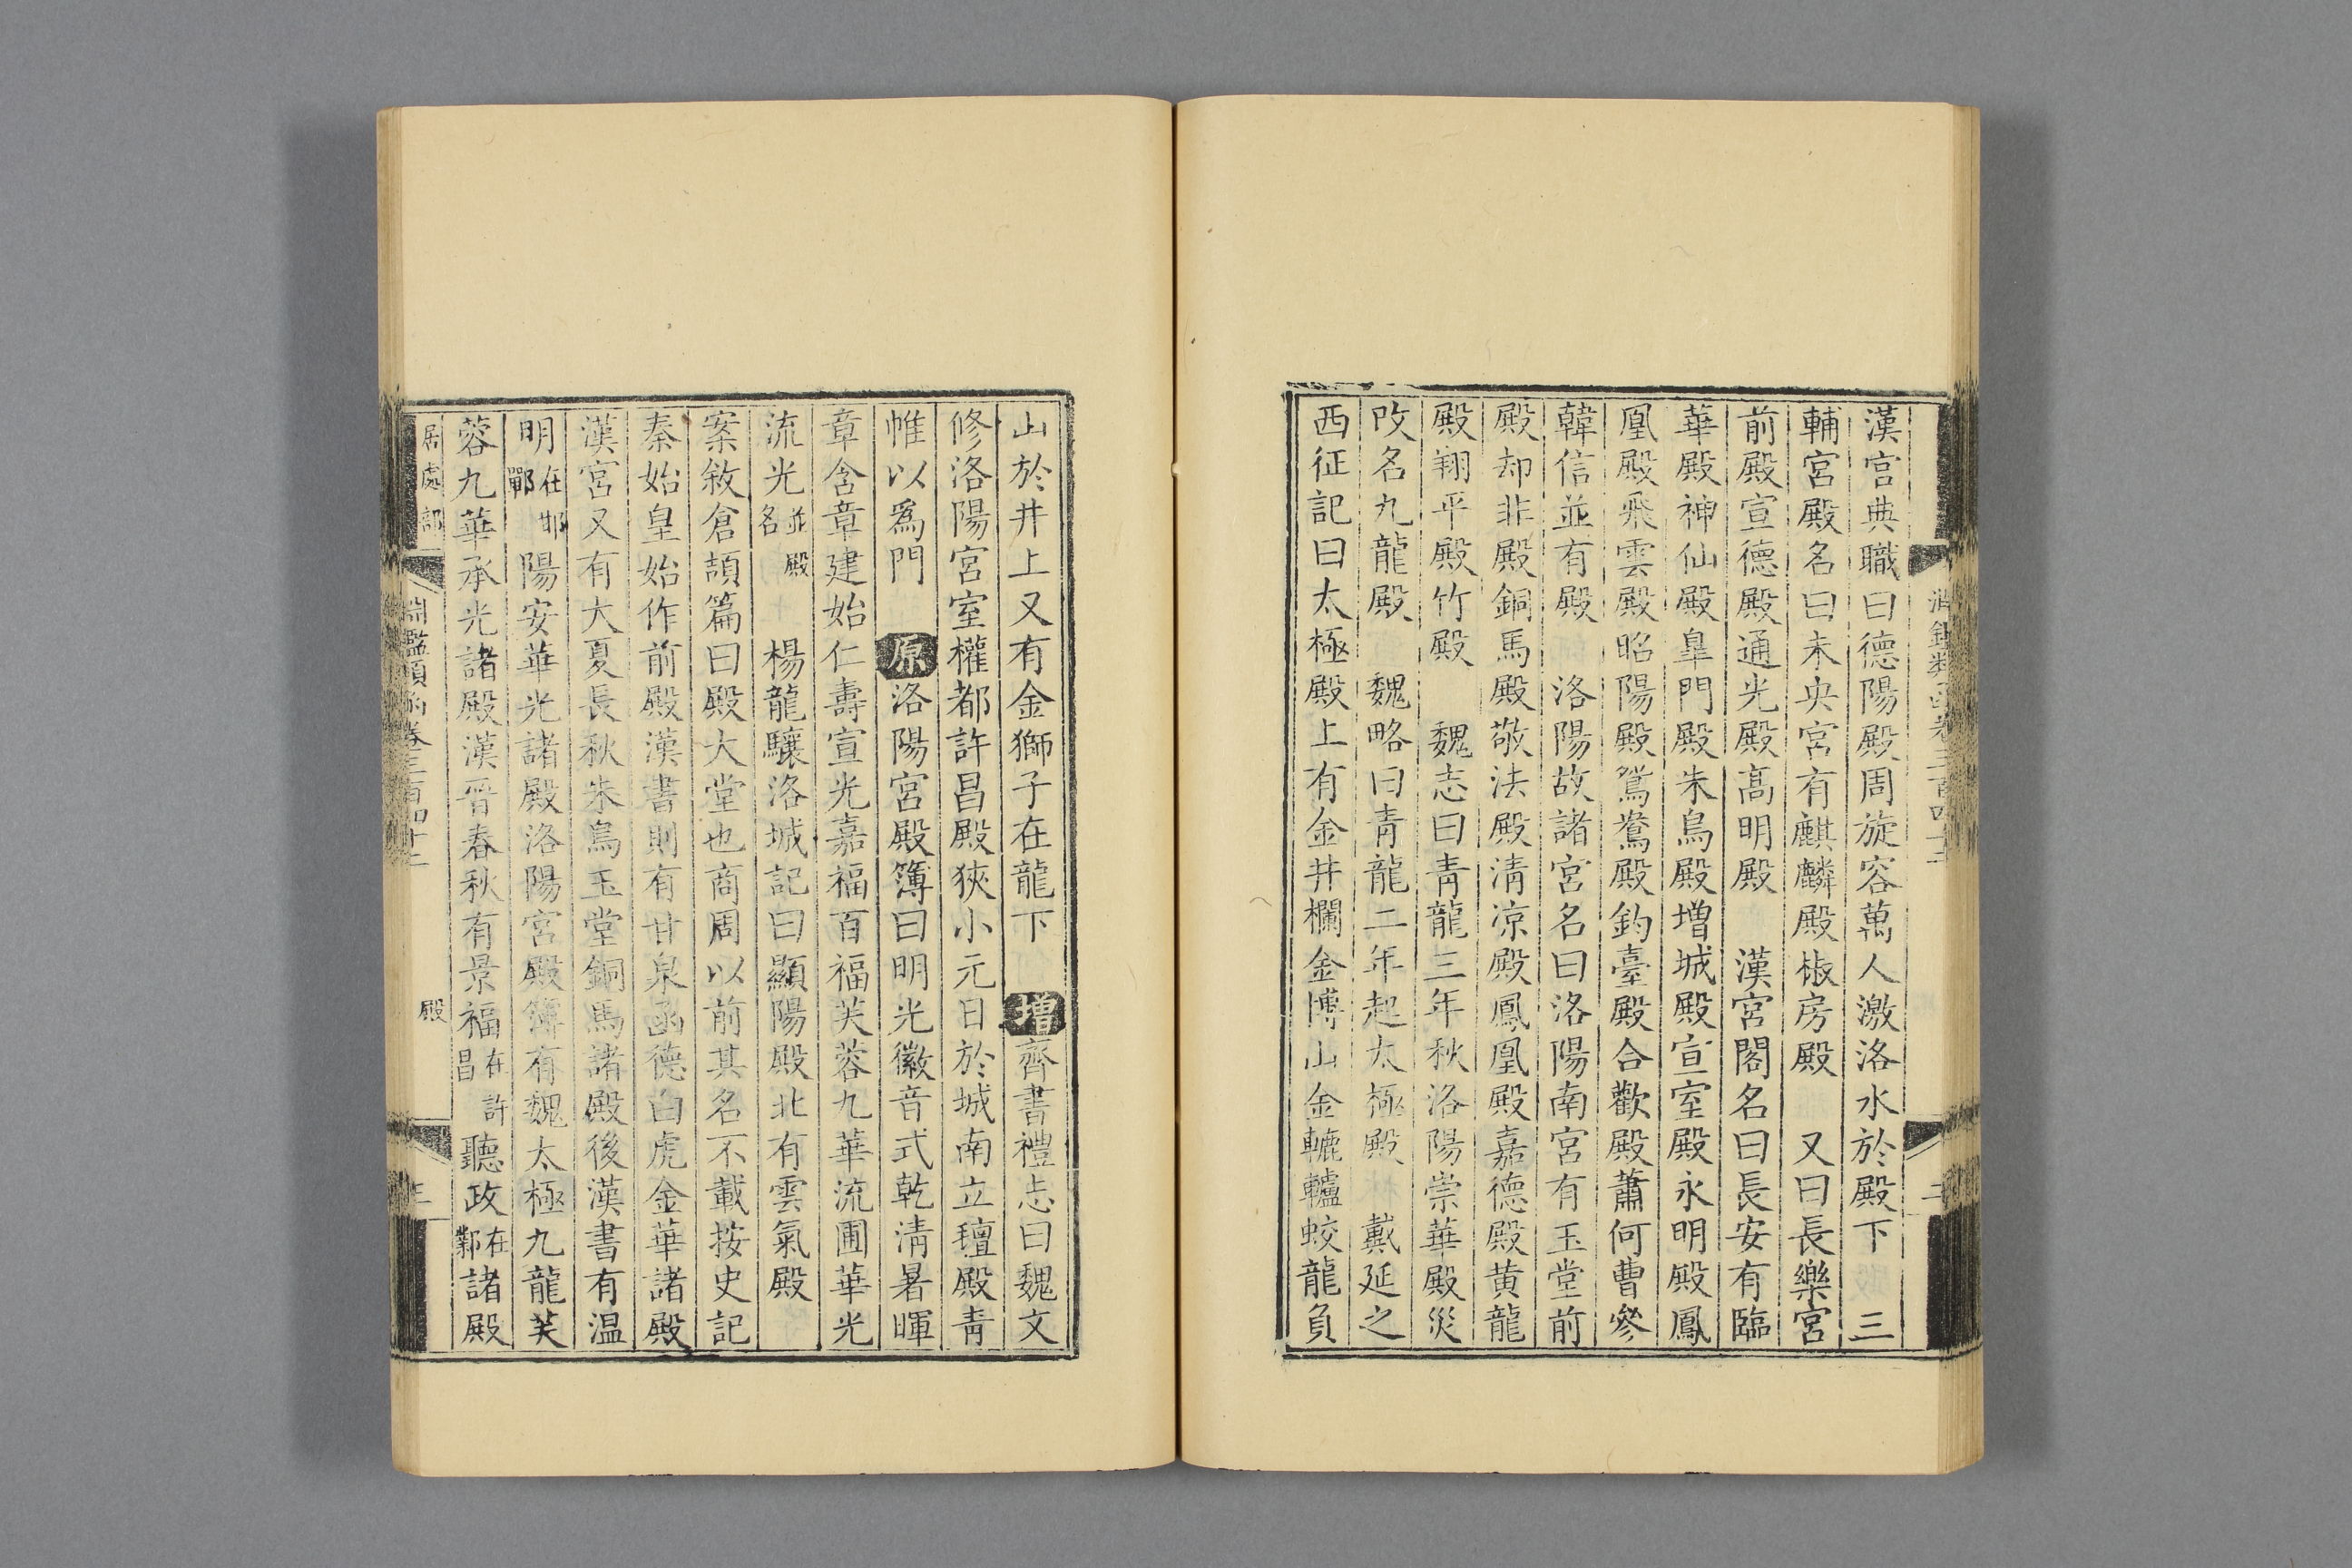 漢宫典職曰德陽殿周旋容萬人激洛水於殿下　三
輔宮殿名曰未央宮有麒麟殿椒房殿　又曰長樂宮
前殿宣德殿通光殿高明殿　漢宮閣名曰長安有臨
華殿神仙殿臯門殿朱鳥殿增城殿宣室殿永明殿鳳
凰殿飛雲殿昭陽殿鴛鴦殿釣臺殿合歡殿蕭何曹參
韓信並有殿　洛陽故諸宮名曰洛陽南宮有玉堂前
殿却非殿銅馬殿敬法殿清凉殿鳳凰殿嘉德殿黃龍
殿翔平殿竹殿　魏志曰青龍三年秋洛陽崇華殿災
改名九龍殿　魏略曰青龍二年起太極殿　戴延之
西征記曰太極殿上有金井欄金博山金轆轤蛟龍負
山於井上又有金獅子在龍下　增齊書禮志曰魏文
修洛陽宮室權都許昌殿狹小元日於城南立氊殿青
帷以爲門　原洛陽宮殿簿曰明光徽音式乾清暑暉
章含章建始仁壽宣光嘉福百福芙蓉九華流圃華光
流光並殿名　楊龍驤洛城記曰顯陽殿北有雲氣殿
案敘倉頡篇曰殿大堂也商周以前其名不載按史記
秦始皇始作前殿漢書則有甘泉函德白虎金華諸殿
漢宮又有大夏長秋朱鳥玉堂銅馬諸殿後漢書有温
明在邯鄲陽安華光諸殿洛陽宮殿簿有魏太極九龍芙
蓉九華承光諸殿漢晉春秋有景福在許昌聽政在鄴諸殿
居處部　淵鑑類函卷三百四十二　殿　三